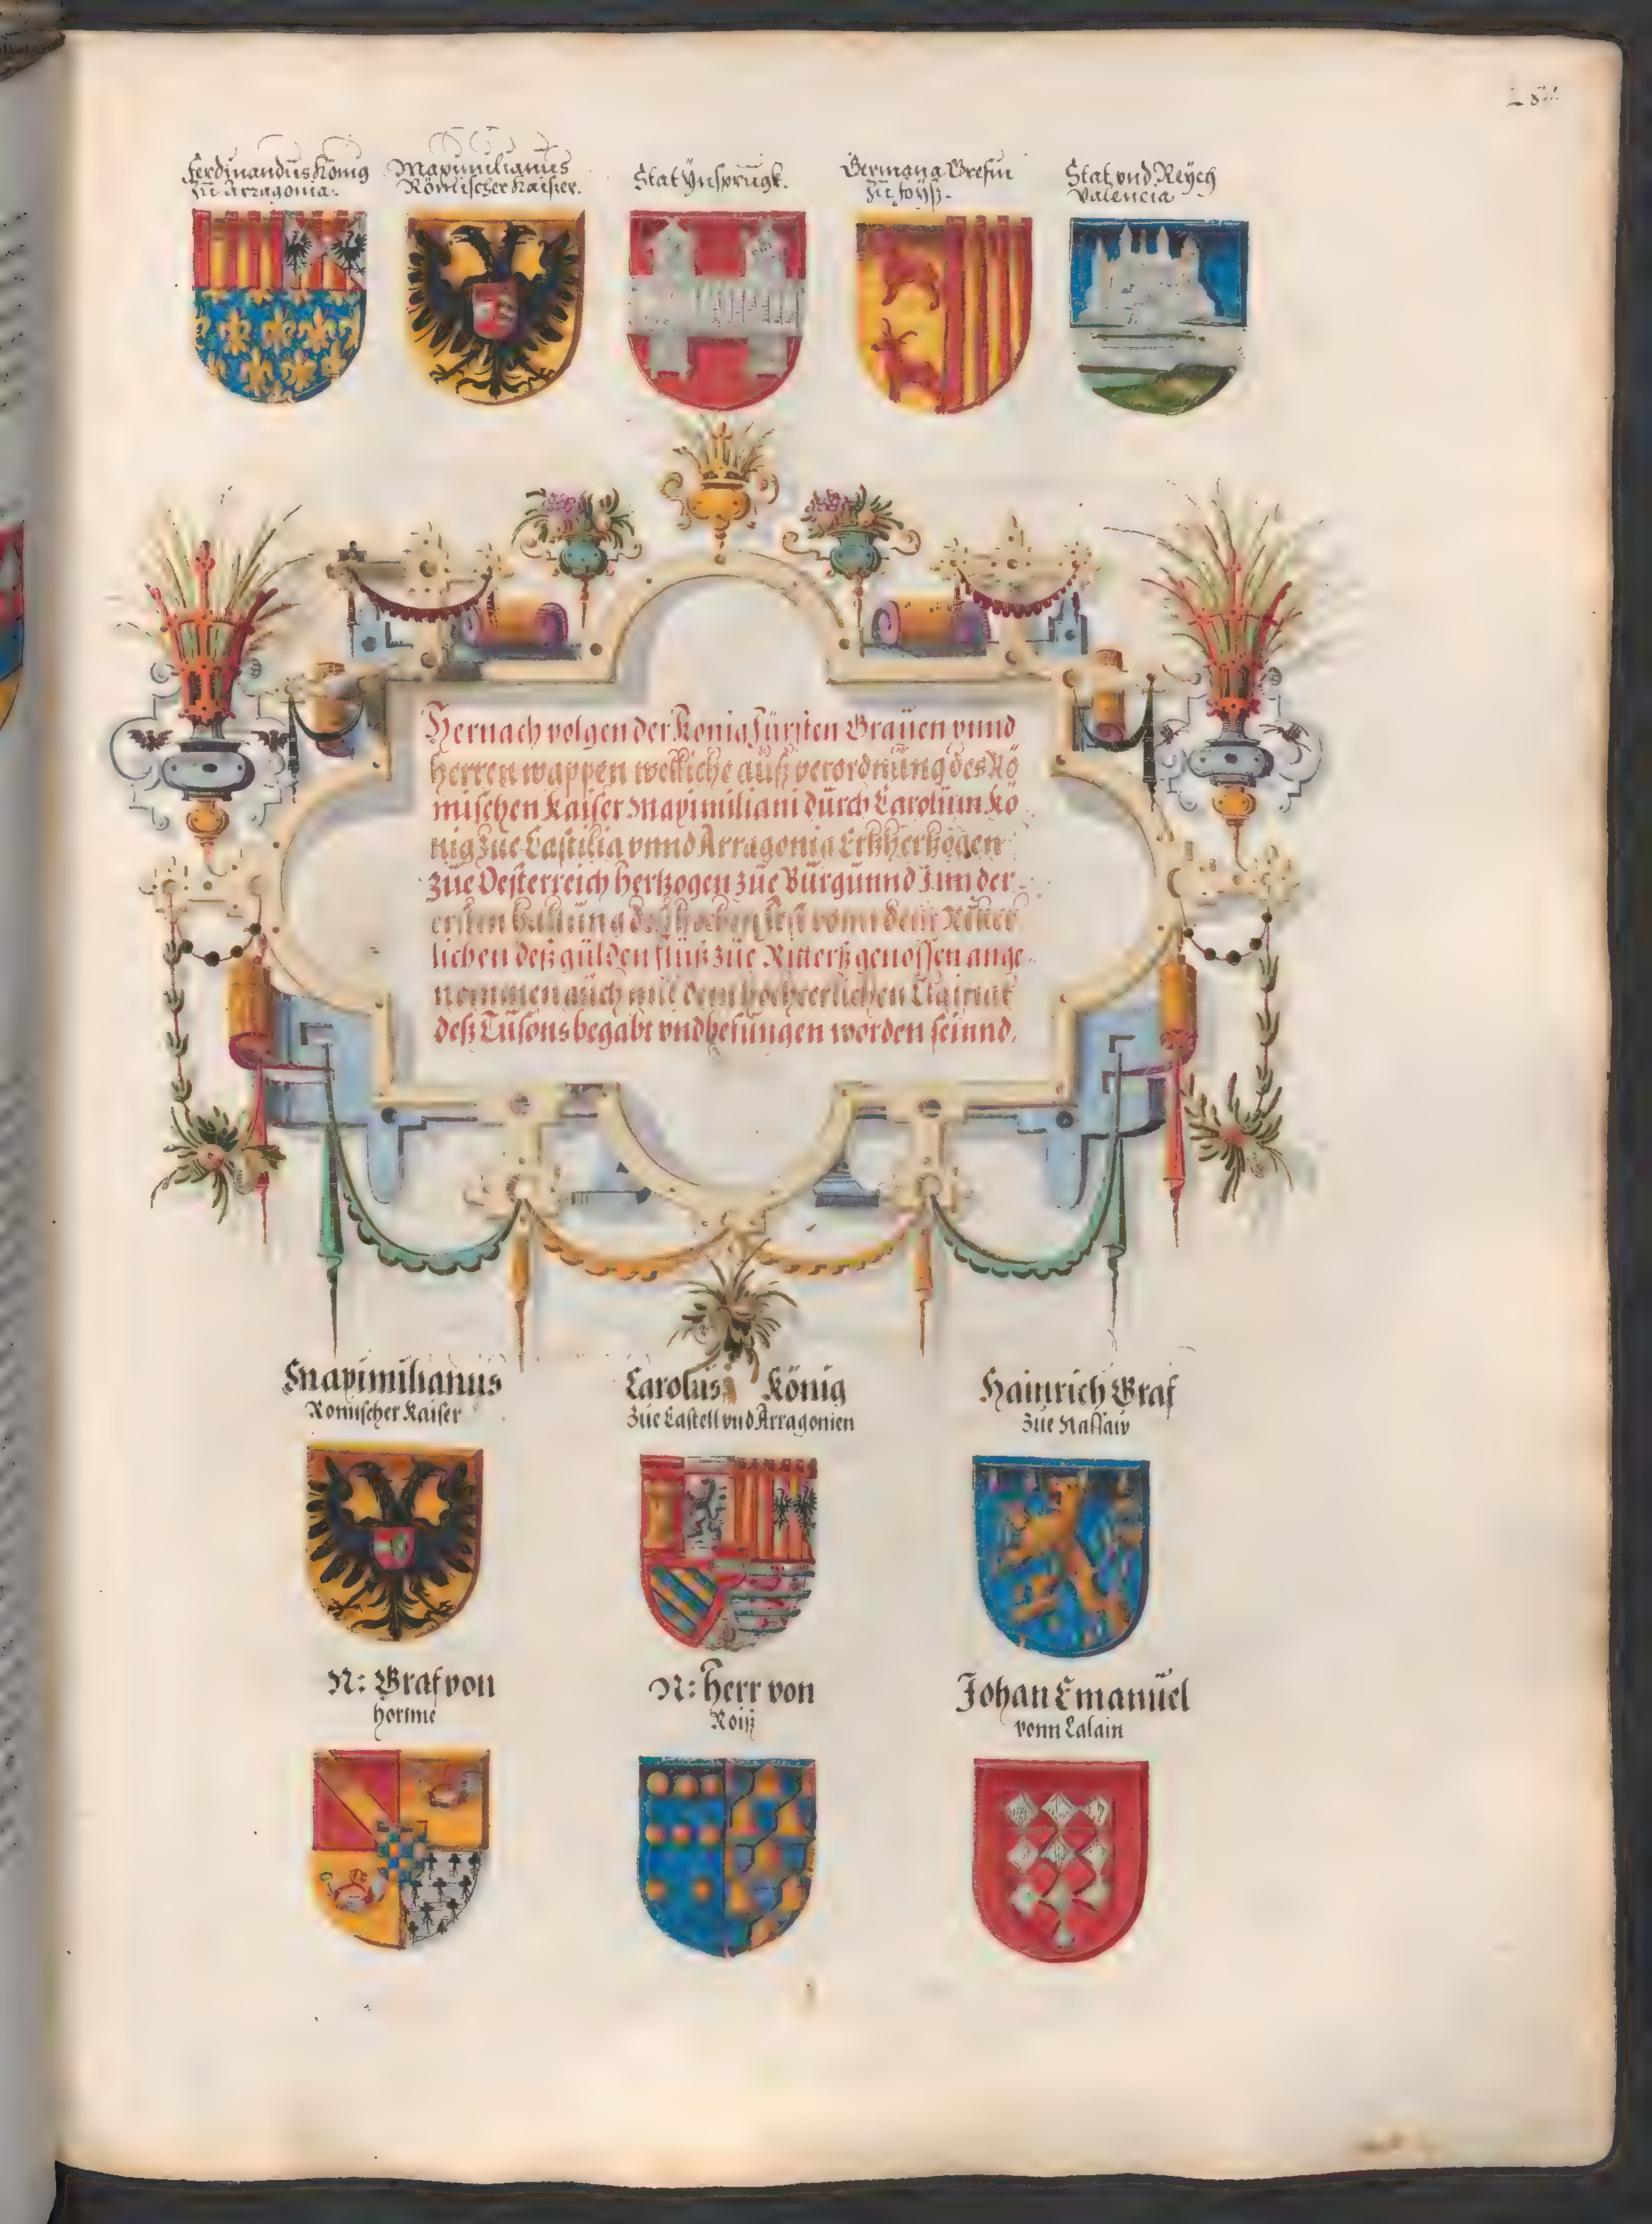 Ferdinandus König
Zu Arragonia.
Maximilianus
Römischer Kaisser.
Stat Ynsprugk.
Germana Grefin
Zu foyß.
Stat vnd Reych
Valencia
Hernach volgen der König Fürsten Grauen vnnd
herren wappen welliche auß verordnung des Rö
mischen Kaiser Maximiliani durch Carolum Kö
nig Zue Castilia vnnd Arragonia Ertzhertzogen
zue Oesterreich hertzogen zue Burgunnd Inn der
ersten
lichen deß gulden fluß zue Ritterß genossen ange
nommen auch mit dem hocheerlichen
deß Tusons begabt vnd worden seinnd.
Maximilianus
Romischer Kaiser
Carolus König
Zue Castell vnd Arragonien
Hainrich Graf
Zue Nassaw
N: Graf von
hornne
N: Herr von
Roiß
Johan Emanuel
vonn Lalain